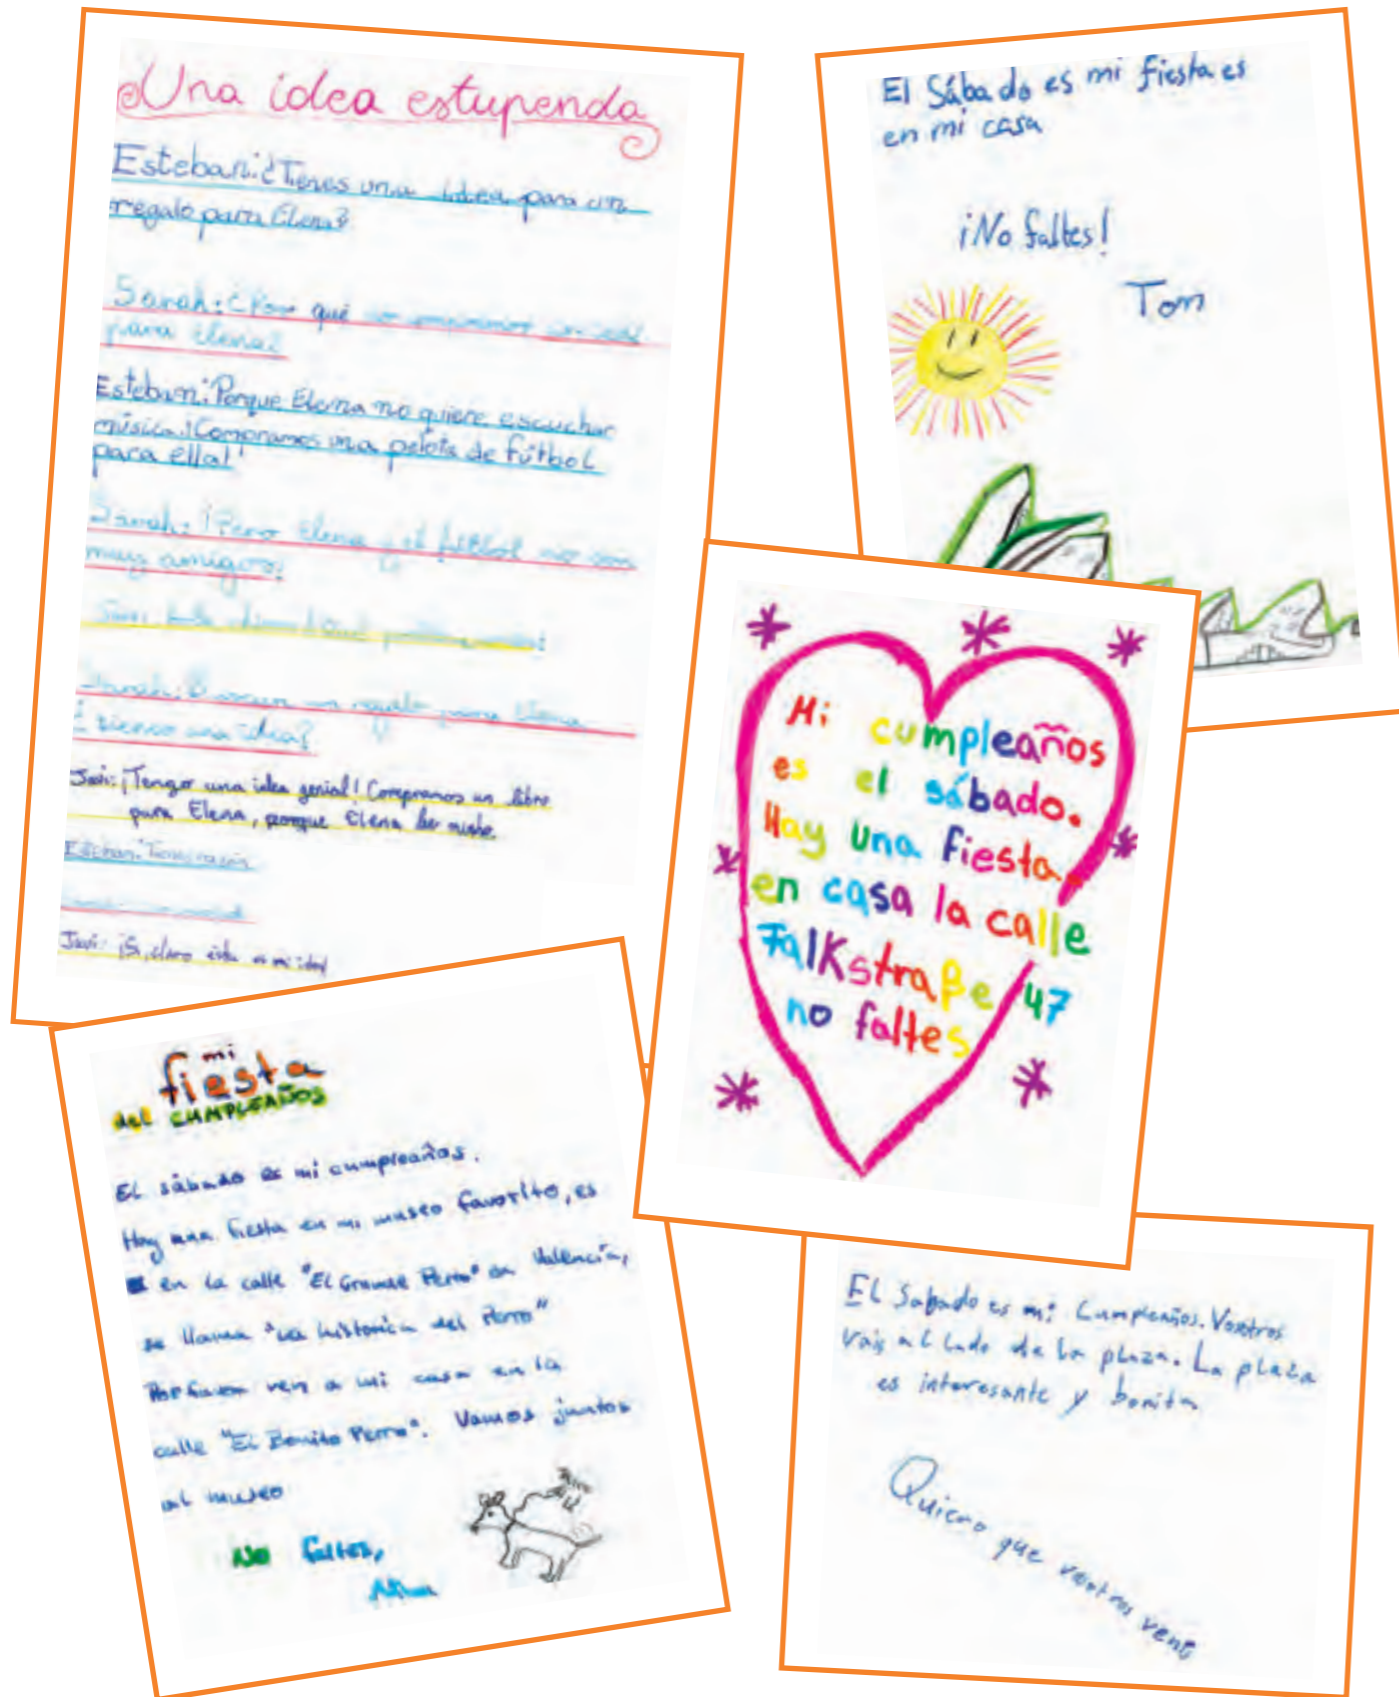 Una idea estupenda
Esteban: ¿Tienes una idea para un
regalo para Elena?
Sarah: ¿Por qué no compramos un
para Elena?
Esteban: Porque Elena no quiere escuchar
música. ¡Compramos una pelota de fútbol
para ella!
Sarah: ¡Pero Elena y el fútbol no son
muy amigos!
Sarah: un regalo para Elena
una idea?
Javi: ¡Tengo una idea genial! Compramos un libro
para Elena, porque Elena lee mucho.
Esteban: Tienes razón
Javi: ¡Sí, claro esta es mi idea!
El Sábado es mi fiesta es
en mi casa
¡No faltes!
Tom
Mi cumpleaños
es el sábado.
Hay una fiesta.
en casa la calle
Falkstraße 47
no faltes
mi
fiesta
del CUMPLEAÑOS
El sábado es mi cumpleaños.
Hay una fiesta en mi museo favorito, es
en la calle "El Grande Perro" en Valencia,
se llama "La historica del Perro"
Por favor ven a mi casa en la
calle "El Bonito Perro". Vamos juntos
al museo
No faltes,
EL Sabado es mi Cumpleaños. Vosotros
vais al lado de la plaza. La plaza
es interesante y bonita
Quiero que vosotros venís